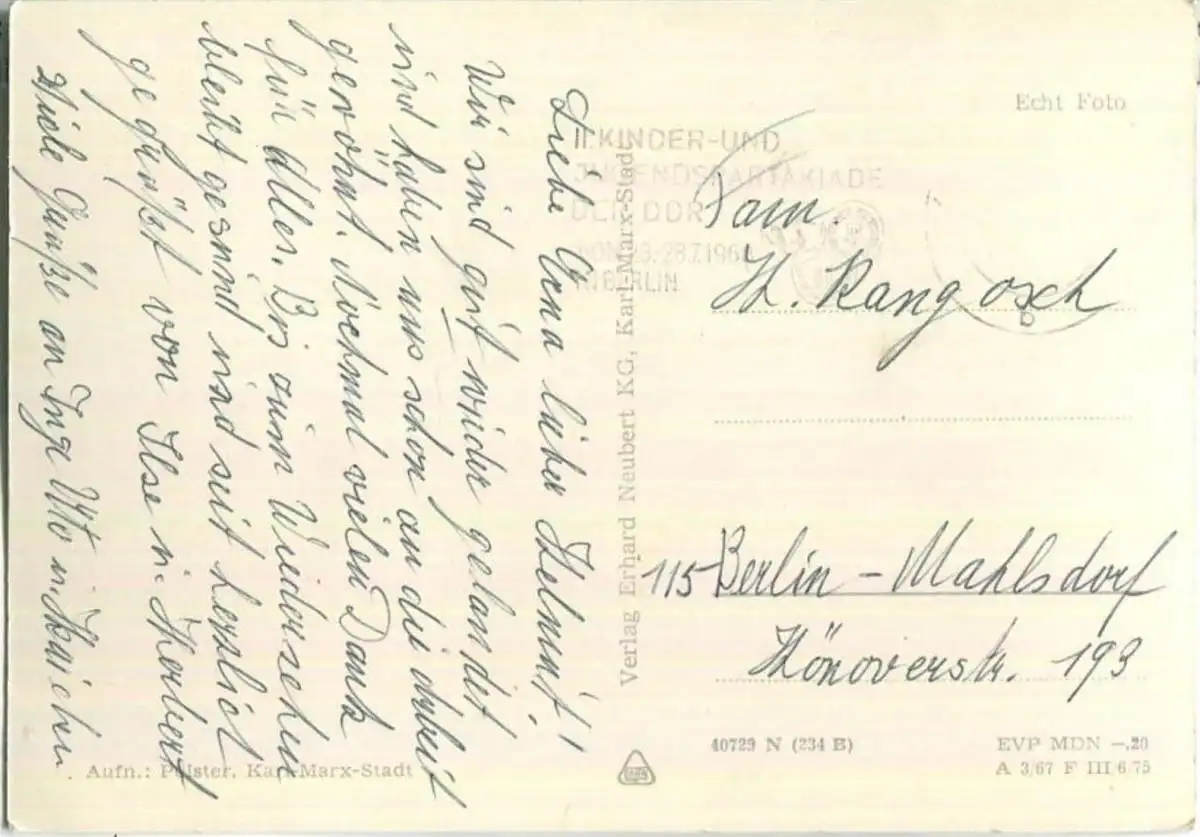 Liebe Erna lieber Helmut!
Wir sind gut wieder gelandet
und haben uns schon an die Arbeit
gewöhnt. Nochmal vielen Dank
für alles. Bis zum Wiedersehen
bleibt gesund und seit herzlich
gegrüßt von Ilse u. Herbert
Viele Grüße an Inge Otto u.
Aufn.: Pölster, Karl-Marx-Stadt
Verlag Erhard Neubert KG, Karl-Marx-Stadt
Echt Foto
II. KINDER-UND
JUGENDSPARTAKIADE
DER DDR
VOM 23.-28.7.196
IN BERLIN
Fam.
H. Rangosch
115 Berlin - Mahlsdorf
Hönowerstr. 193
40729 N (234 B)
EVP MDN -.20
A 3/67 F III/6/75